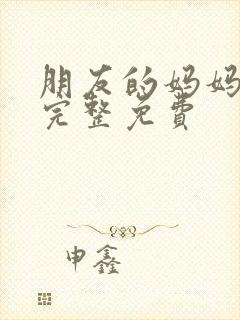 朋友的妈妈
完整免费
申鑫